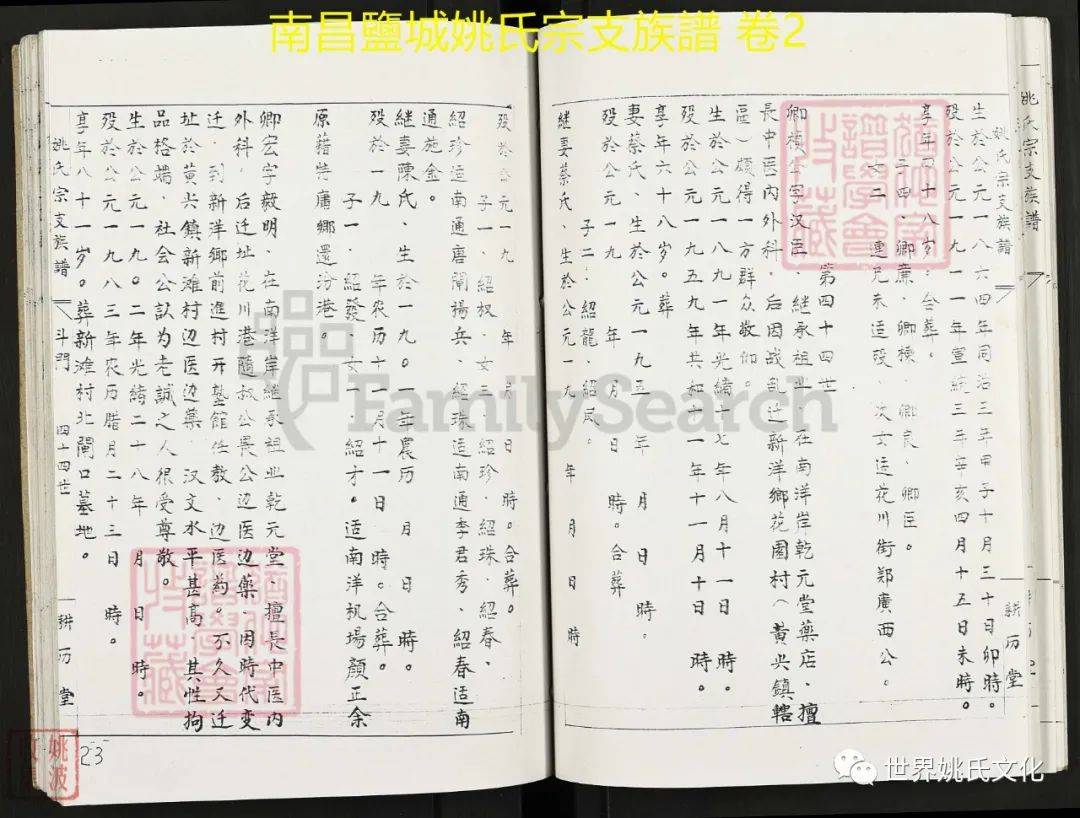 南昌鹽城姚氏宗支族譜 卷2
姚氏宗支族譜
姚氏宗支族譜
耕历堂
生於公元一八六四年同治三年甲子十月三十日卯時。
殁於公元一九一一年宣統三年辛亥四月十五日未時。
享年四十八岁。合葬。
子四、卿廉、卿楨、卿宸、卿臣。
女二、連兄未适殁、次女适花川街郑廣西公。
第四十四世
卿楨公字汉臣、継承祖业、在南洋岸乾元堂藥店、擅
長中医內外科、后因战乱迁新洋鄉花園村(黄尖鎮轄
區)頗得一方群众敬仰。
生於公元一八九一年光緒十七年八月十一日 時。
殁於公元一九五九年共和十一年十一月十日 時。
享年六十八岁。葬
妻蔡氏、生於公元一九五 年 月 日 時。
殁於公元一九 年 月 日 時。合葬
子二、紹龍、紹凤。
継妻蔡氏、生於公元一九 年 月 日 時
殁於公元一九 年 月 日 時。合葬。
子一、紹权、女三、紹珍、紹珠、紹春、
紹珍适南通唐閘揚兵、紹珠适南通李君秀、紹春适南
通施金。
継妻陳氏、生於一九〇一年農历 月 日 時。
殁於一九 年农历十一月十一日 時。合葬。
子一、紹發、女一、紹才。适南洋机場顔正余
原藉 唐鄉還汾港。
卿宏字毅明、在南洋岸継承祖业乾元堂、擅長中医内
外科，后迁址花川港隨叔公畏公边医边藥、因時代变
迁，到新洋鄉前進村开塾館任教、边医药。不久又迁
址於黄尖鎮新滩村边医边藥、汉文水平甚高、其性拘
品格端、社会公認为老誠之人很受尊敬。
生於公元一九〇二年光緒二十八年 月 日 時。
殁於公元一九八三年农历腊月二十三日 時。
享年八十一岁。葬新滩村北閘口墓地。
姚氏宗支族譜
斗門
四十四世
耕历堂
23
姚波
FamilySearch
世界姚氏文化